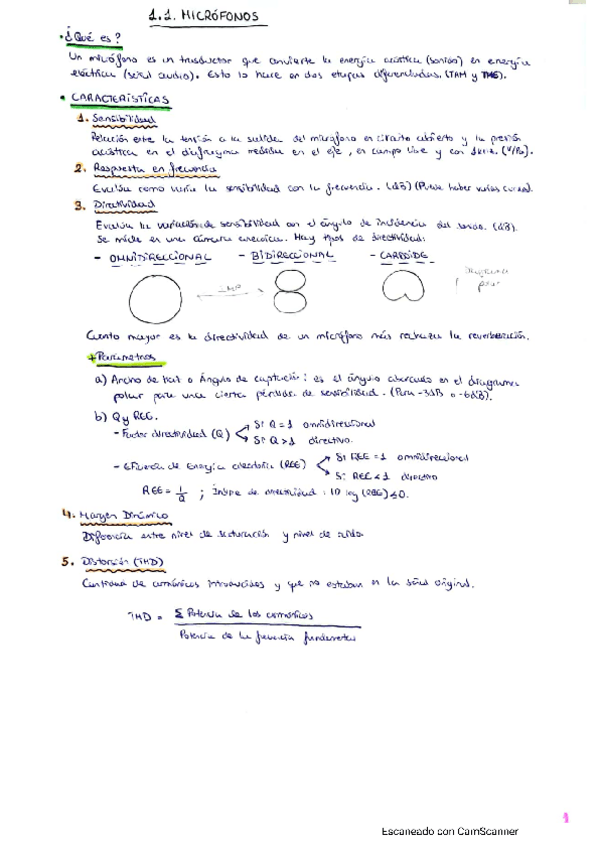 1.1. MICRÓFONOS
• ¿Qué es?
Un micrófono es un trasductor que convierte la energía acústica (sonido) en energía
eléctrica (señal audio). Esto lo hace en dos etapas diferenciadas. (TAM y TME).
• CARACTERÍSTICAS
1. Sensibilidad
Relación entre la tensión a la salida del micrófono en circuito abierto y la presión
acústica en el diafragma medidas en el eje, en campo libre y con (V/Pa).
2. Respuesta en frecuencia
Evalúa como varía la sensibilidad con la frecuencia. (dB) (Puede haber varias curvas).
3. Directividad
Evalúa la variación de sensibilidad con el ángulo de incidencia del sonido. (dB).
Se mide en una cámara anecoica. Hay tipos de directividad:
- OMNIDIRECCIONAL - BIDIRECCIONAL - CARDIOIDE
Diagrama
polar
Cuanto mayor es la directividad de un micrófono más rechaza la reverberación.
+ Parámetros
a) Ancho de haz o Ángulo de captación: es el ángulo abarcado en el diagrama
polar para una cierta pérdida de sensibilidad. (Para -3dB o -6dB).
b) Q y REE.
- Factor directividad (Q) Si Q = 1 omnidireccional
Si Q > 1 directivo.
- Eficiencia de Energía aleatoria (REE) Si REE = 1 omnidireccional
Si REE < 1 directivo
REE = 1/Q ; Índice de directividad: 10 log (REE) ≤ 0.
4. Margen Dinámico
Diferencia entre nivel de saturación y nivel de ruido
5. Distorsión (THD)
Cantidad de armónicos introducidos y que no estaban en la señal original.
THD = Σ Potencia de los armónicos
Potencia de la frecuencia fundamental
1
Escaneado con CamScanner